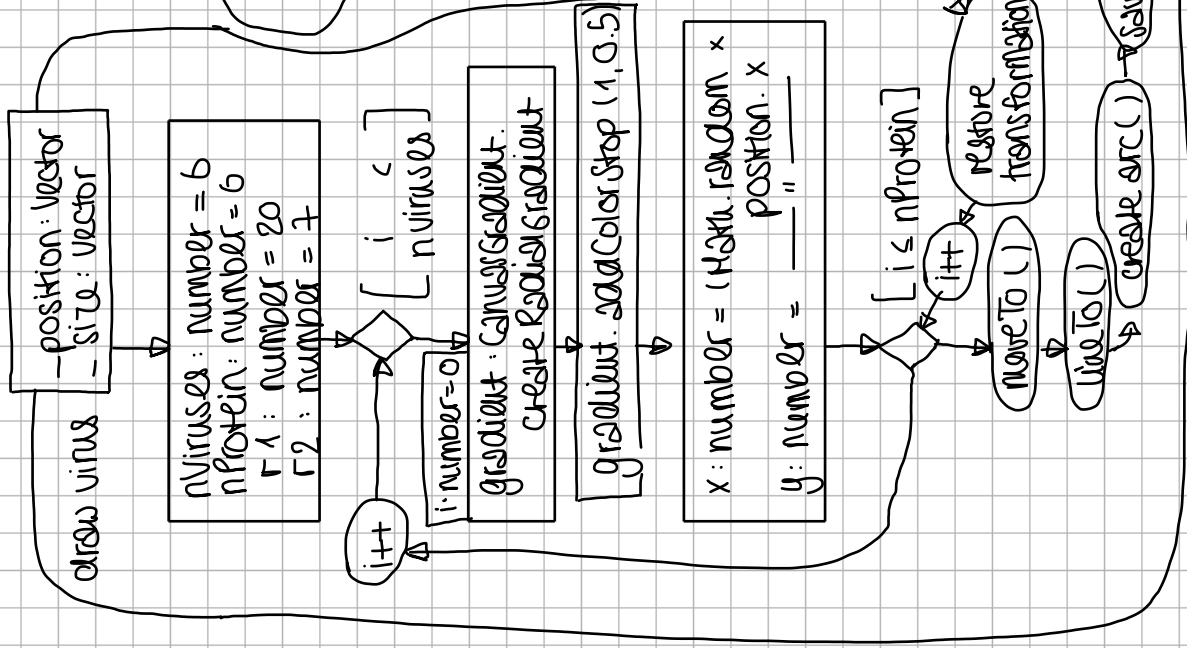 draw virus
_position: vector
_size: vector
nViruses: number = 6
nProtein: number = 6
r1: number = 20
r2: number = 7
[i <
nviruses]
i++
i: number = 0
gradient: CanvasGradient.
createRadialGradient
gradient.addColorStop(1, 0.5)
x: number = (Math.random x
position.x
y: number = — " —
[i ≤ nProtein]
i++
restore
transformation
moveTo()
lineTo()
create arc()